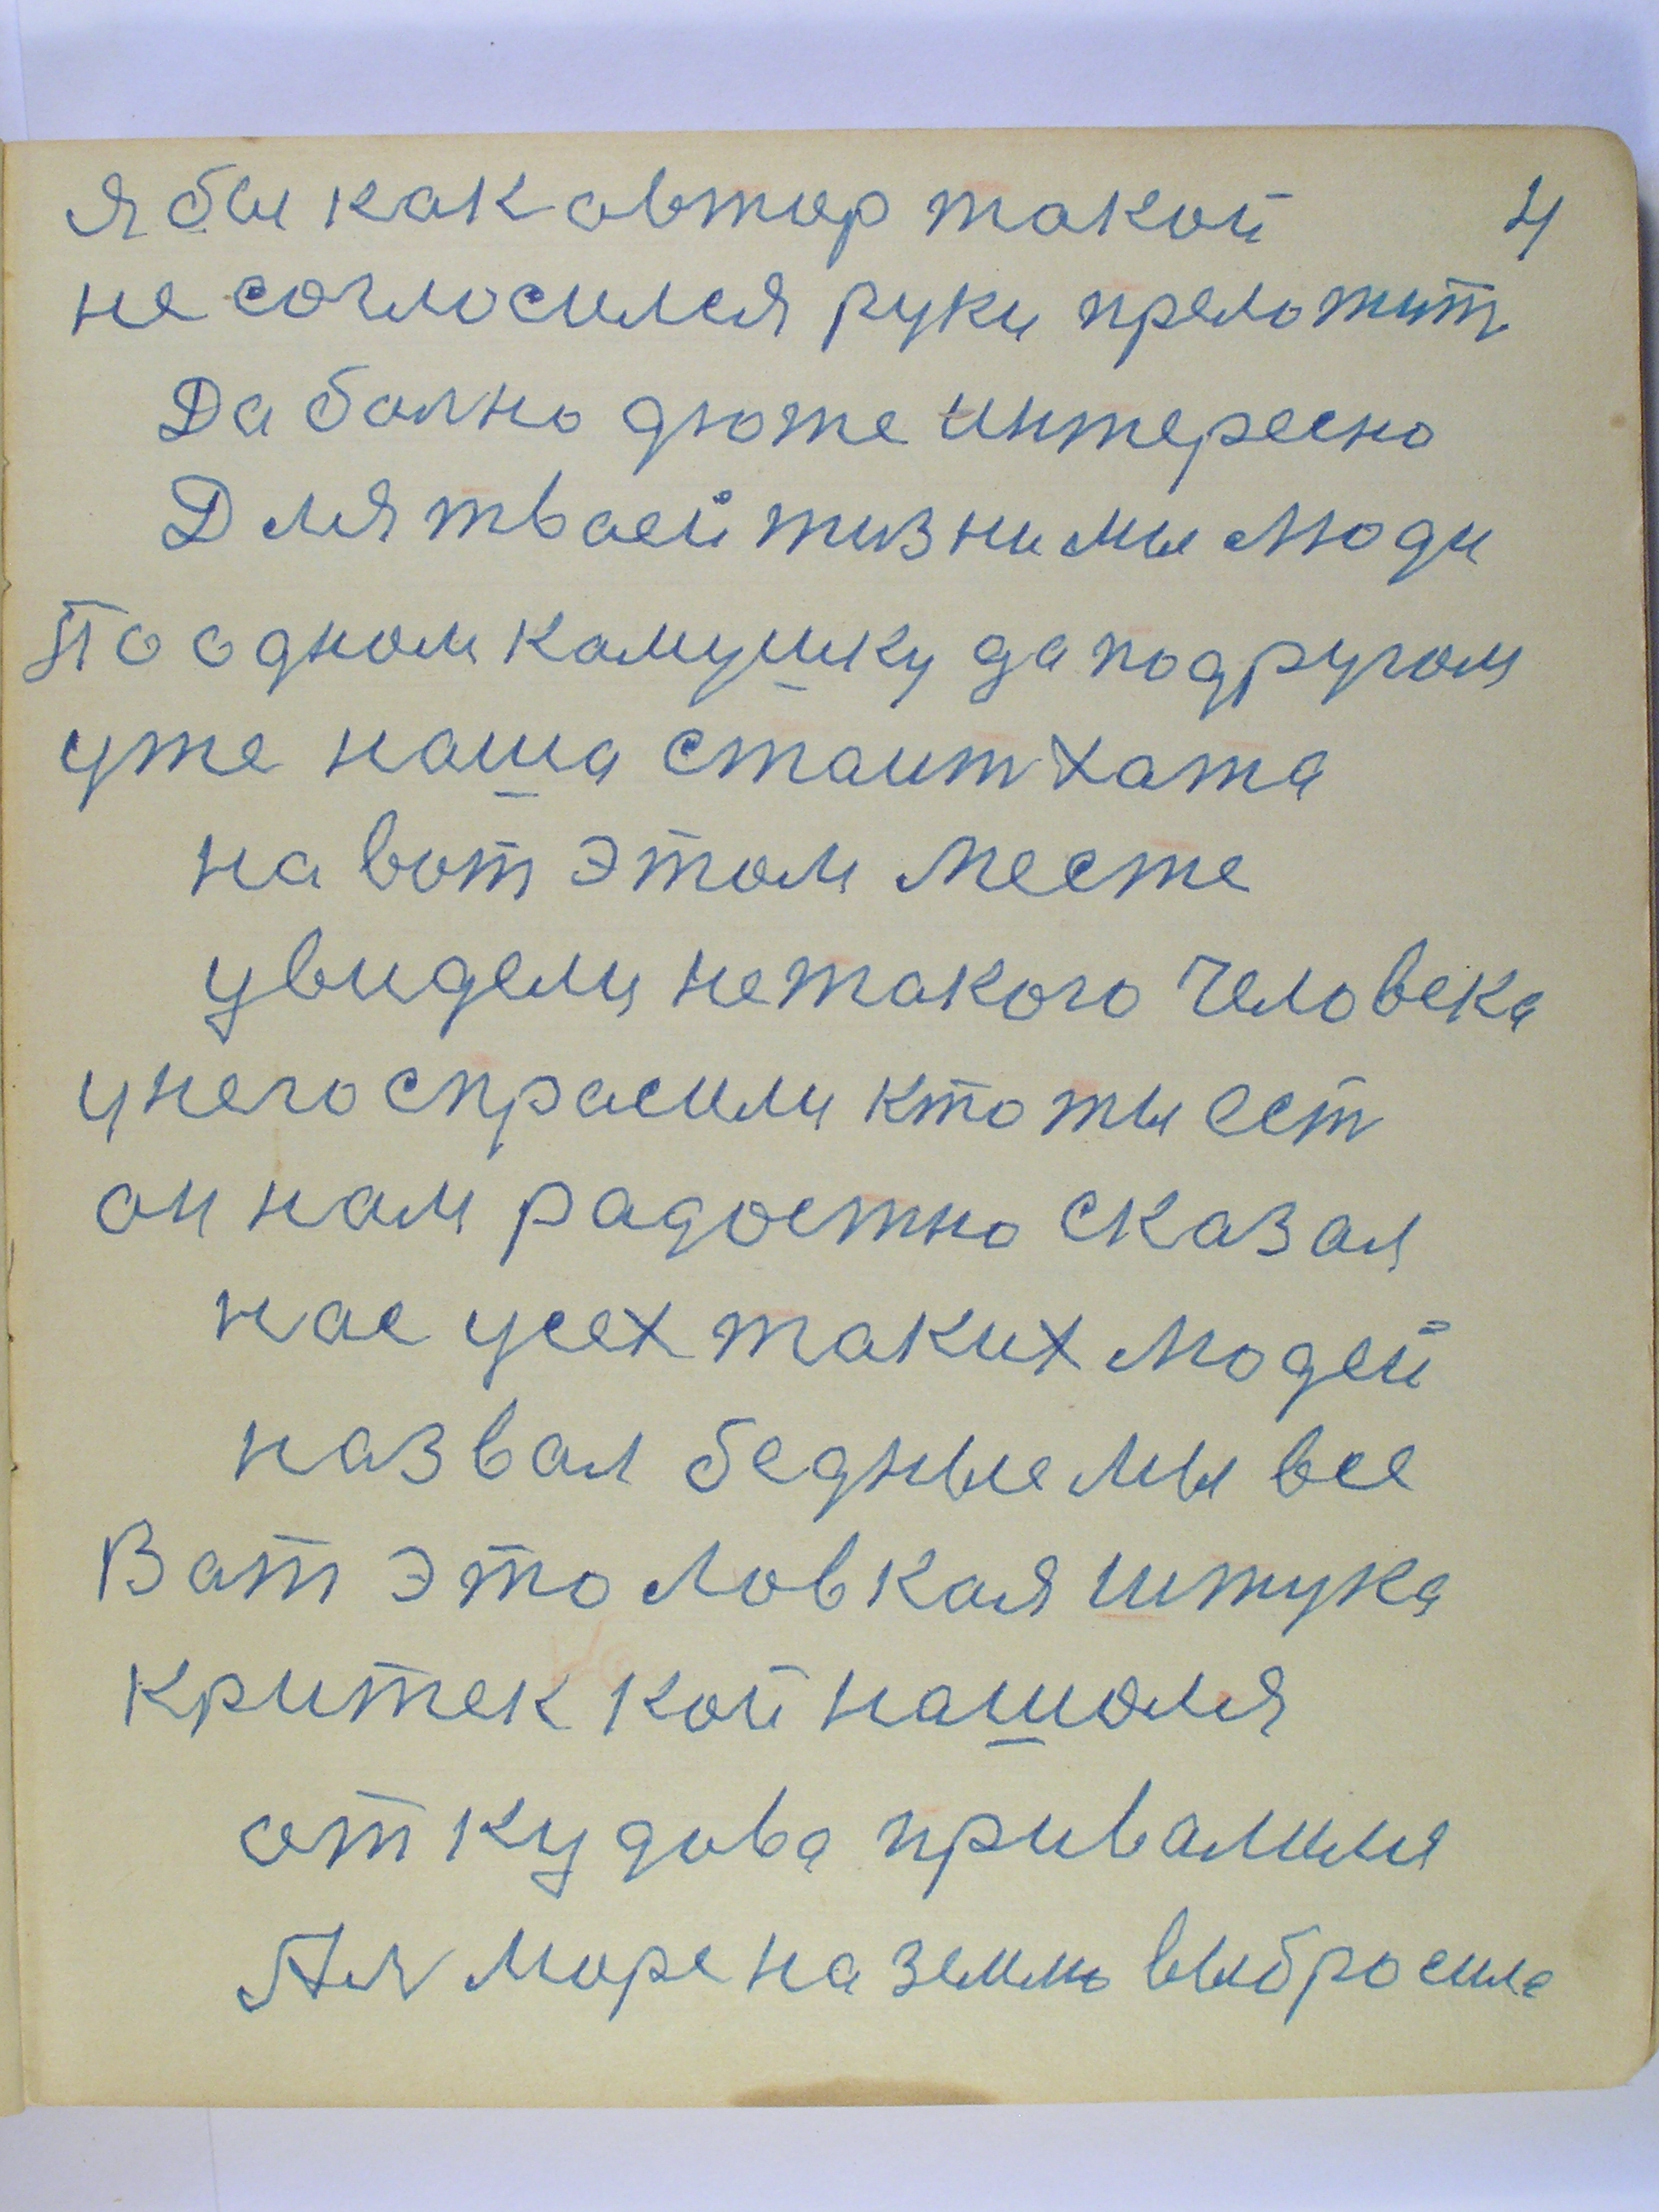 я бы как автор такой 4
не согласился руки преложит
Да болно дюже интересно
Для тваей жизни мы люди
По одном камушку да подругом
уже наша стаит хата
на вот этом месте
увидели нетакого человека
унего спрасили кто ты ест
он нам радостно сказал
нас усех таких людей
назвал бедные мы все
Ват это ловкая штука
критек кой нашолся
от кудова привалился
Аль море на землю выбросила